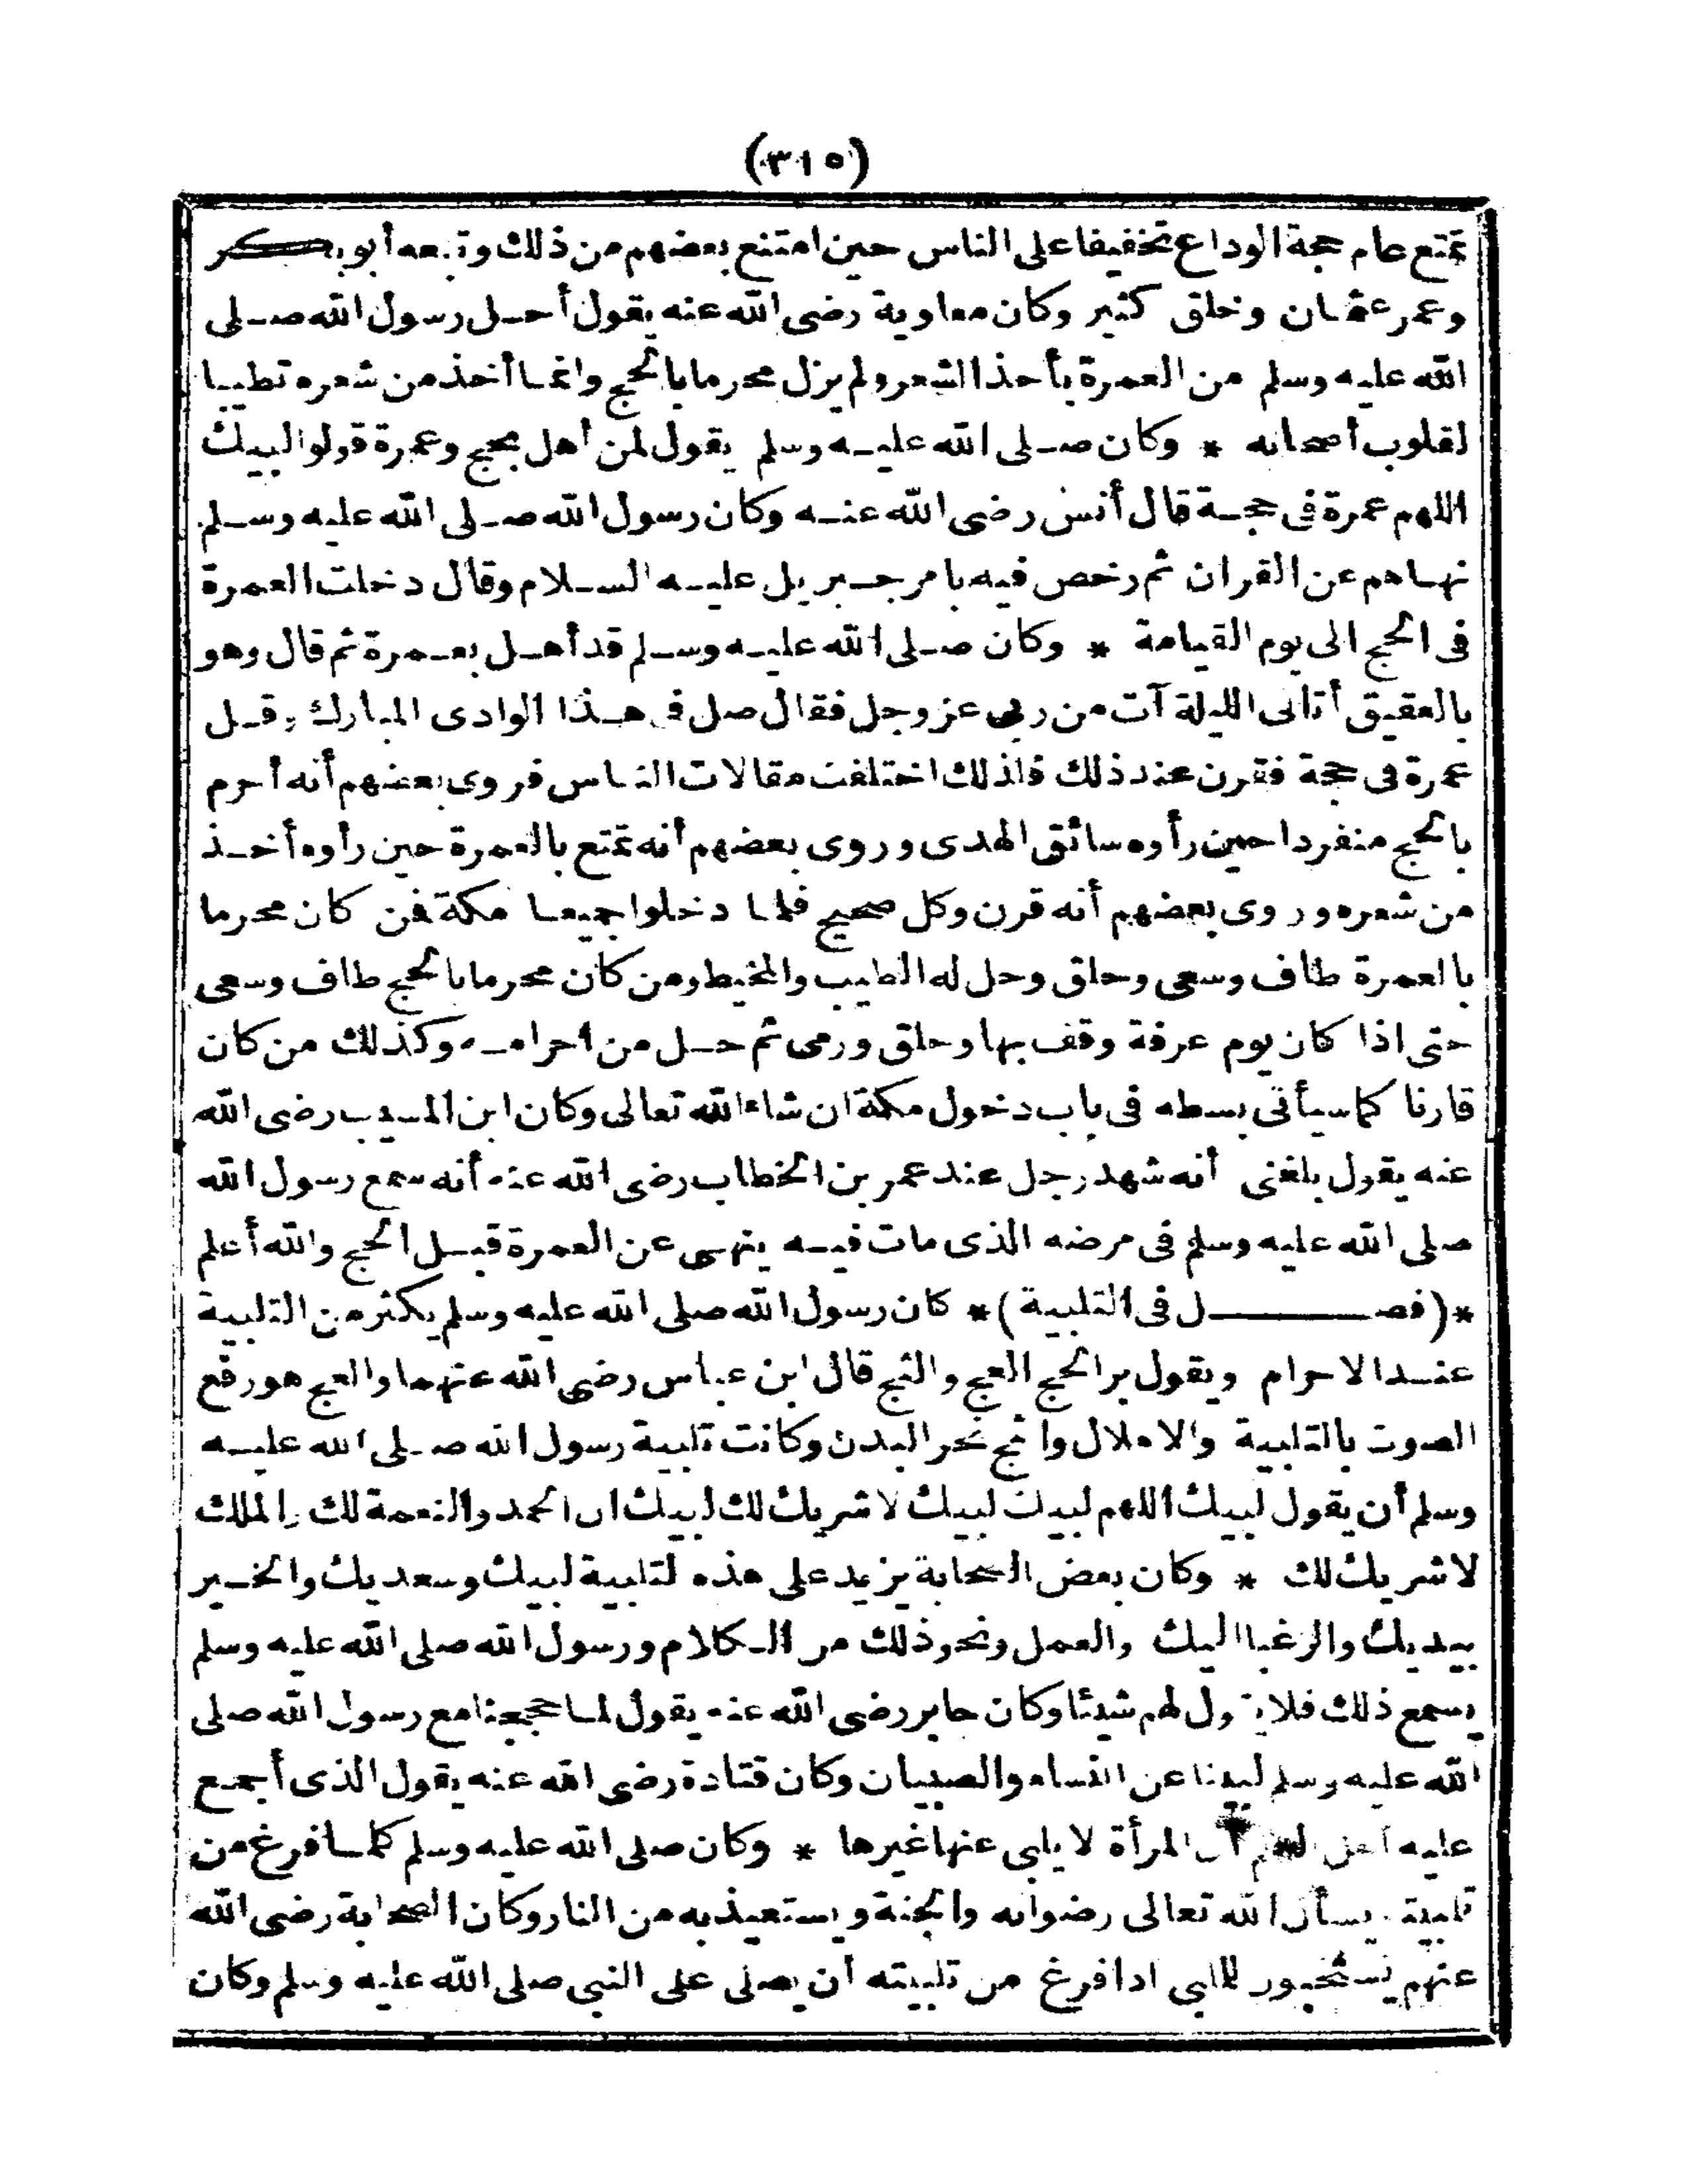 (٣١٥)
تمتع عام حجة الوداع تخفيفا على الناس حين امتنع بعضهم من ذلك وتبعه أبو بكر
وعمر عثمان وخلق كثير وكان معاوية رضى الله عنه يقول أحل رسول الله صلى
الله عليه وسلم من العمرة بأخذ الشعر ولم يزل محرما بالحج وانما أخذ من شعره تطييبا
لقلوب أصحابه * وكان صلى الله عليه وسلم يقول لمن أهل بحج وعمرة قولوا لبيك
اللهم عمرة فى حجة قال أنس رضى الله عنه وكان رسول الله صلى الله عليه وسلم
نهاهم عن القران ثم رخص فيه بامر جبريل عليه السلام وقال دخلت العمرة
فى الحج الى يوم القيامة * وكان صلى الله عليه وسلم قد أهل بعمرة ثم قال وهو
بالعقيق أتانى الليلة آت من ربى عز وجل فقال صل فى هذا الوادى المبارك وقل
عمرة فى حجة فقرن عند ذلك فلذلك اختلفت مقالات الناس فروى بعضهم أنه أحرم
بالحج منفردا حين رأوه سائق الهدى وروى بعضهم أنه تمتع بالعمرة حين رأوه أخذ
من شعره وروى بعضهم أنه قرن وكل صحيح فلما دخلوا جميعا مكة فمن كان محرما
بالعمرة طاف وسعى وحلق وحل له الطيب والمخيط ومن كان محرما بالحج طاف وسعى
حتى اذا كان يوم عرفة وقف بها وحلق ورمى ثم حل من احرامه وكذلك من كان
قارنا كما سيأتى بسطه فى باب دخول مكة ان شاء الله تعالى وكان ابن المسيب رضى الله
عنه يقول بلغنى أنه شهد رجل عند عمر بن الخطاب رضى الله عنه أنه سمع رسول الله
صلى الله عليه وسلم فى مرضه الذى مات فيه ينهى عن العمرة قبل الحج والله أعلم
*(فصل فى التلبية)* كان رسول الله صلى الله عليه وسلم يكثر من التلبية
عند الاحرام ويقول بر الحج العج والثج قال ابن عباس رضى الله عنهما والعج هو رفع
الصوت بالتلبية والاهلال والثج نحر البدن وكانت تلبية رسول الله صلى الله عليه
وسلم أن يقول لبيك اللهم لبيك لبيك لا شريك لك لبيك ان الحمد والنعمة لك والملك
لا شريك لك * وكان بعض الصحابة يزيد على هذه التلبية لبيك وسعديك والخير
بيديك والرغبا اليك والعمل ونحو ذلك من الكلام ورسول الله صلى الله عليه وسلم
يسمع ذلك فلا يقول لهم شيئا وكان جابر رضى الله عنه يقول لما حججنا مع رسول الله صلى
الله عليه وسلم لبينا عن النساء والصبيان وكان قتادة رضى الله عنه يقول الذى أجمع
عليه أهل العلم أن المرأة لا يلبى عنها غيرها * وكان صلى الله عليه وسلم كلما فرغ من
تلبيته يسأل الله تعالى رضوانه والجنة ويستعيذ به من النار وكان الصحابة رضى الله
عنهم يستحبون للملبى اذا فرغ من تلبيته أن يصلى على النبى صلى الله عليه وسلم وكان